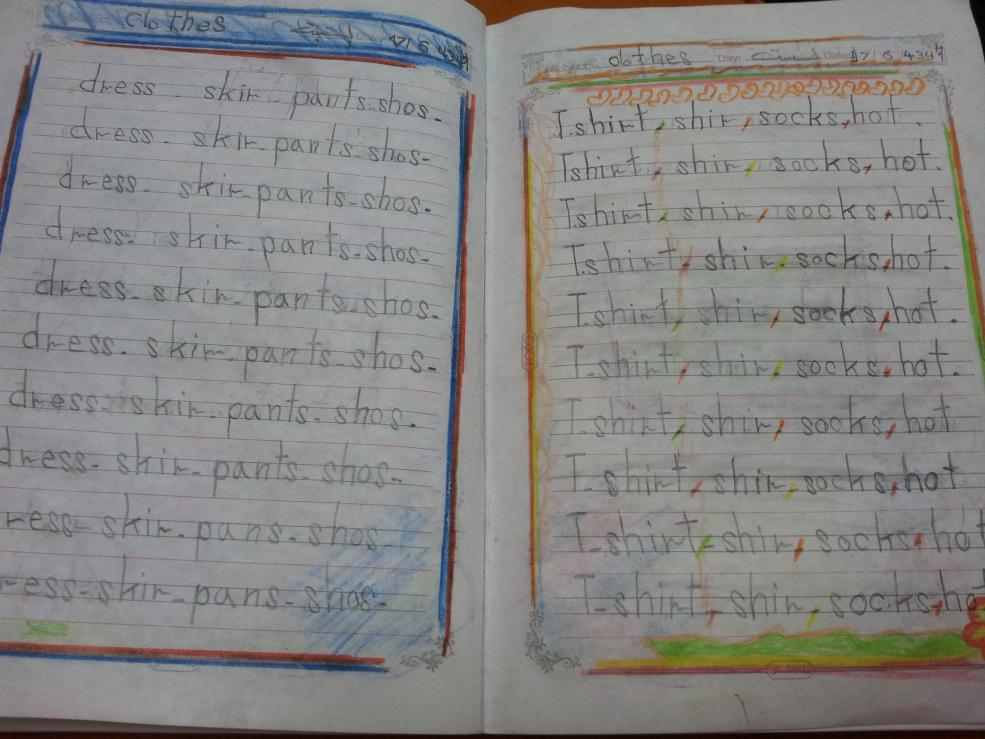 clothes 17/6 434
dress - skir - pants - shos -
dress - skir - pants - shos -
dress - skir - pants - shos -
dress - skir - pants - shos -
dress - skir - pants - shos -
dress - skir - pants - shos -
dress - skir - pants - shos -
dress - skir - pants - shos -
ress - skir - pans - shos
ress - skir - pans - shos -
Subject: clothes Day: Date: 17/6 434
T.shirt, shir, socks, hot.
Tshirt, shir, socks, hot.
T.shirt, shir, socks, hot.
T.shirt, shir, socks, hot.
T-shirt, shir, socks, hot.
T-shirt, shir, socks, hot.
T-shirt, shir, socks, hot
T-shirt, shir, socks, hot
T-shirt, shir, socks, hot
T-shirt, shir, socks, ho